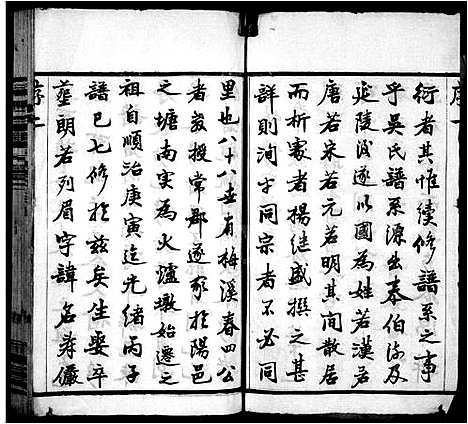 衍者其惟續修譜系之事
乎吳氏譜系源出泰伯流及
延陵後遂以國為姓若漢若
唐若宋若元若明其間散居
而析家者楊繼盛撰之甚
詳則洵乎同宗者不必同
里也八十八世有梅溪春四公
者教授常郡遂家於陽邑
之塘南實為火爐墩始遷之
祖自順治庚寅迄光緒丙子
譜已七修於茲矣生娶卒
塟朗若列眉字諱名号儼